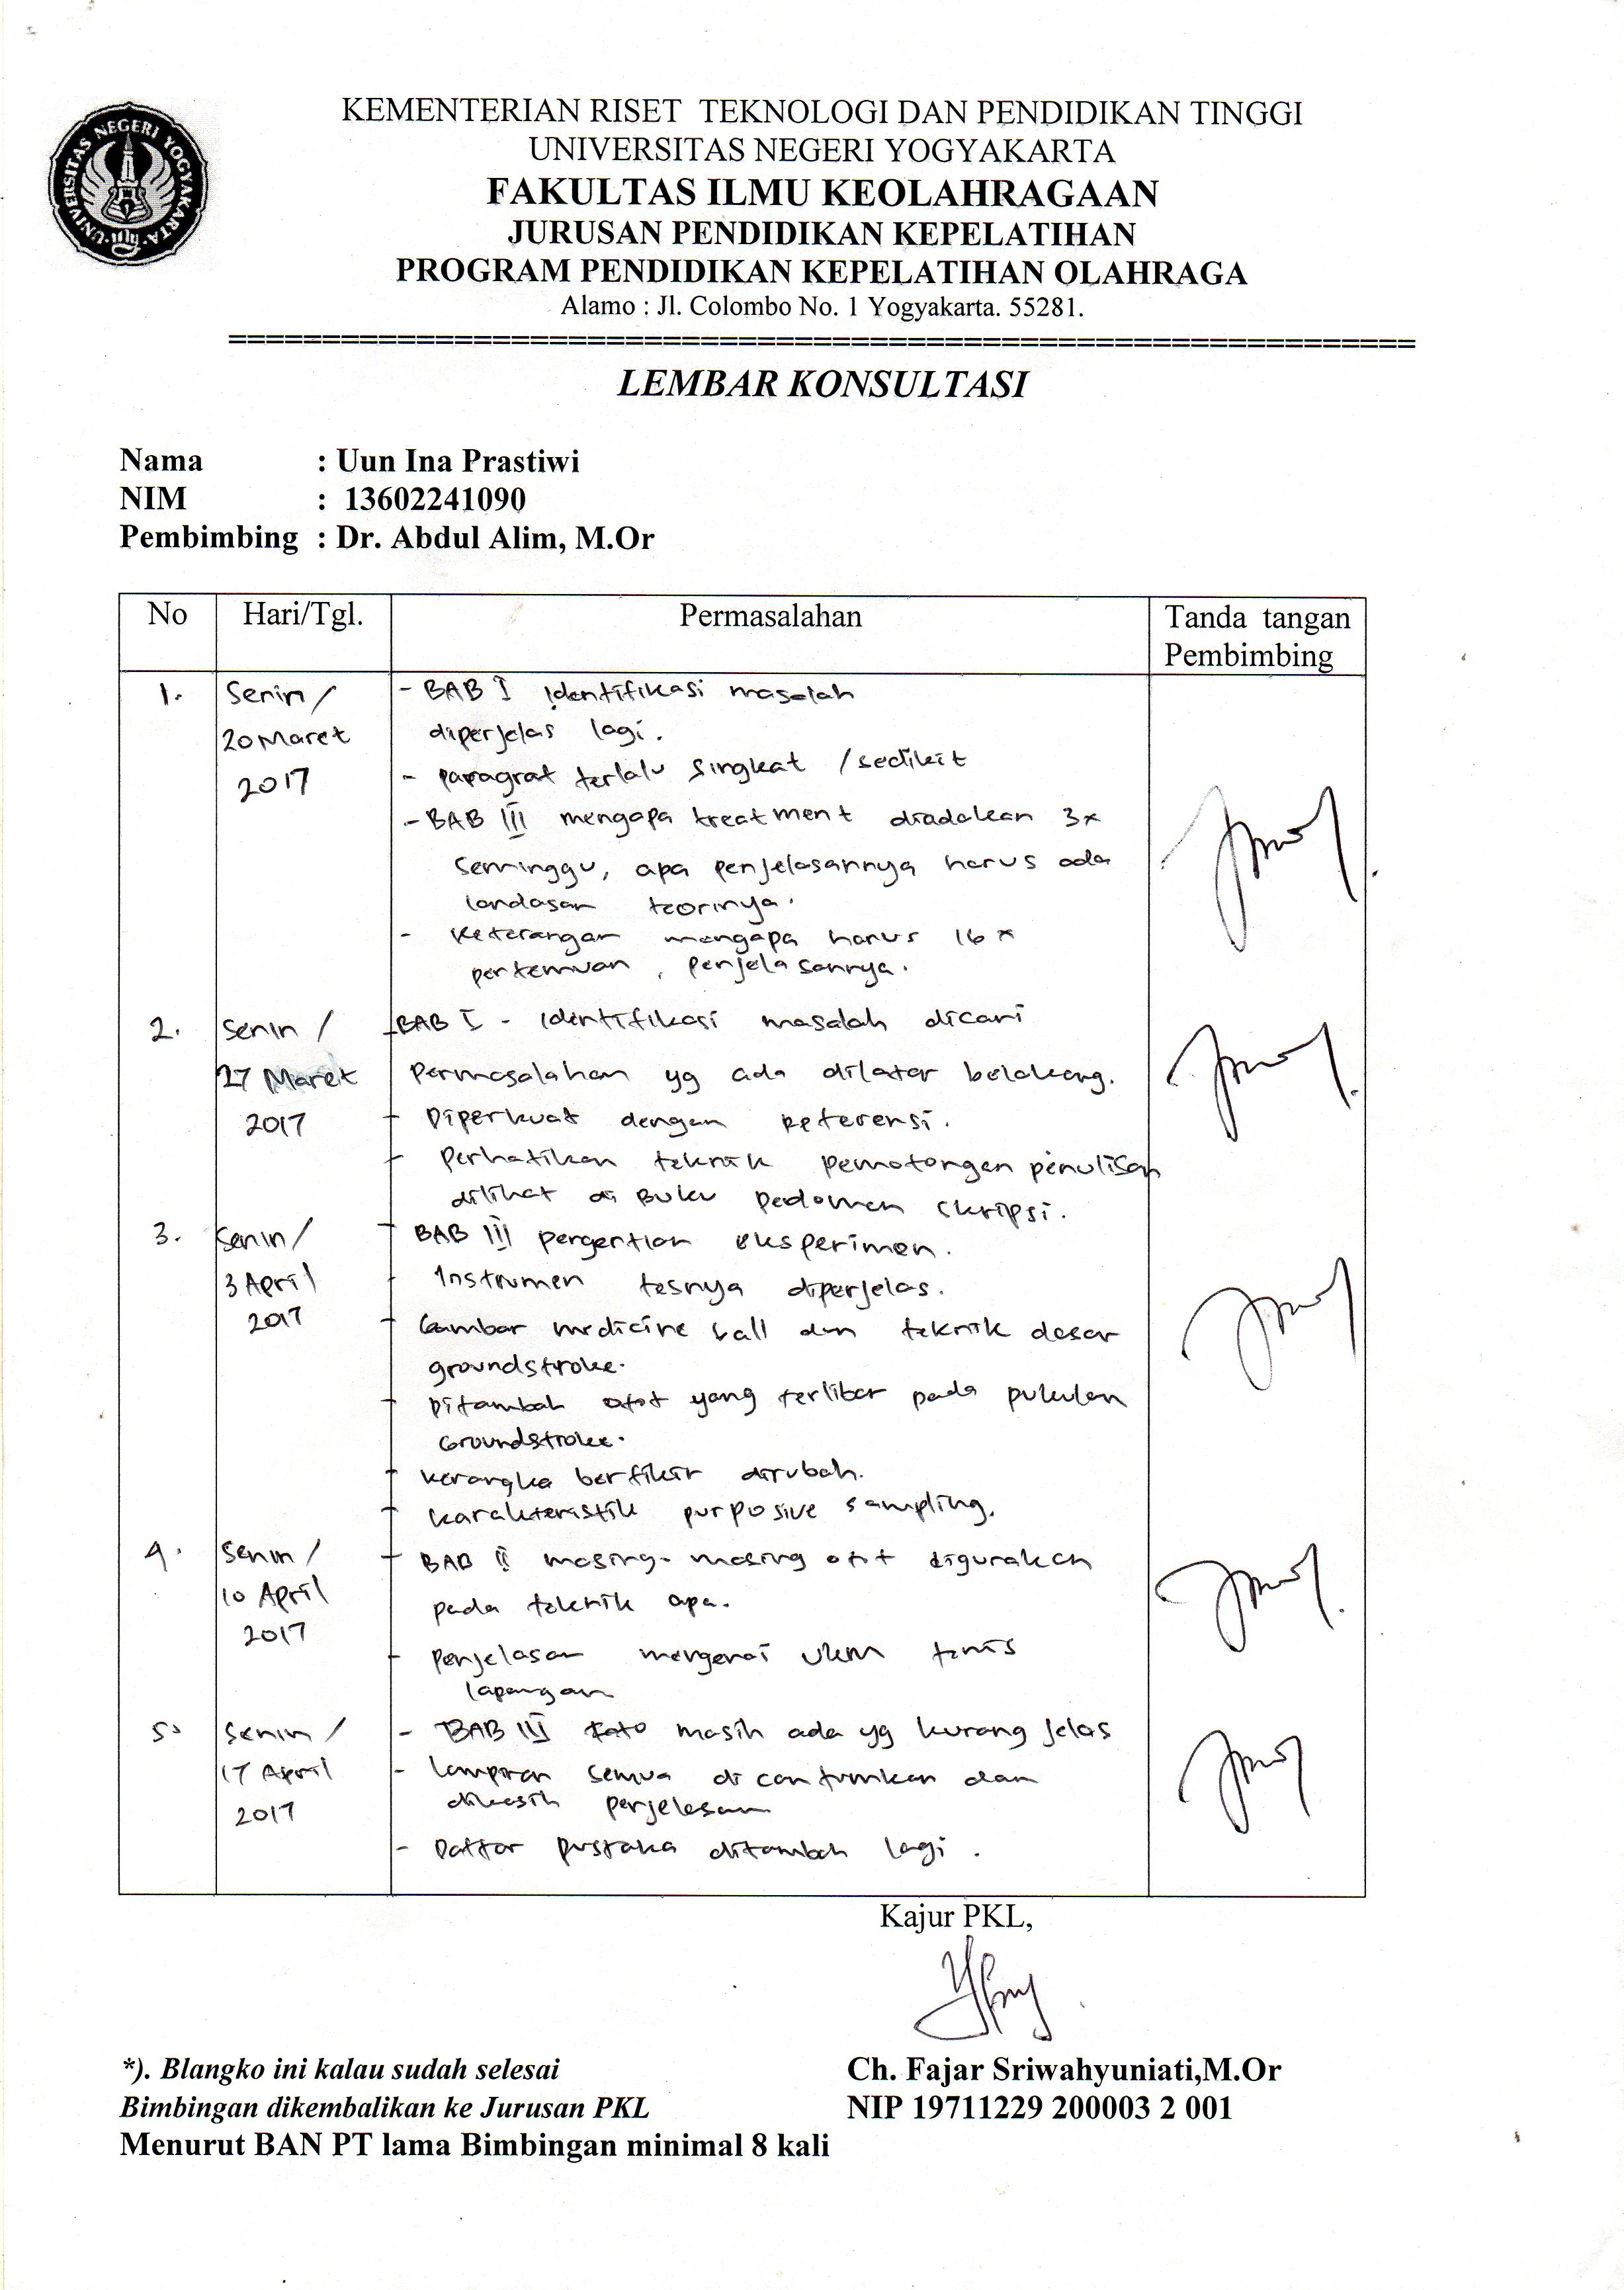 UNIVERSITAS NEGERI YOGYAKARTA
KEMENTERIAN RISET TEKNOLOGI DAN PENDIDIKAN TINGGI
UNIVERSITAS NEGERI YOGYAKARTA
FAKULTAS ILMU KEOLAHRAGAAN
JURUSAN PENDIDIKAN KEPELATIHAN
PROGRAM PENDIDIKAN KEPELATIHAN OLAHRAGA
Alamo : Jl. Colombo No. 1 Yogyakarta. 55281.
LEMBAR KONSULTASI
Nama : Uun Ina Prastiwi
NIM : 13602241090
Pembimbing : Dr. Abdul Alim, M.Or
No Hari/Tgl. Permasalahan Tanda tangan
Pembimbing
1. Senin / - BAB I Identifikasi masalah
20 Maret diperjelas lagi.
2017 - paragraf terlalu singkat / sedikit
- BAB III mengapa treatment diadakan 3x
seminggu, apa penjelasannya harus ada
landasan teorinya.
- Keterangan mengapa harus 16 x
pertemuan, penjelasannya.
2. Senin / - BAB I - Identifikasi masalah dicari
27 Maret Permasalahan yg ada dilatar belakang.
2017 - Diperkuat dengan referensi.
- Perhatikan teknik pemotongan penulisan
dilihat di Buku Pedoman Skripsi.
3. Senin / - BAB III pengertian eksperimen.
3 April - Instrumen tesnya diperjelas.
2017 - Gambar medicine ball dan teknik dasar
groundstroke.
- Ditambah otot yang terlibat pada pukulan
Groundstroke.
- Kerangka berfikir dirubah.
- Karakteristik purposive sampling.
4. Senin / - BAB II masing-masing otot digunakan
10 April pada teknik apa.
2017 - Penjelasan mengenai UKM tenis
lapangan
5. Senin / - BAB III masih ada yg kurang jelas
17 April - Lampiran semua dicantumkan dan
2017 dikasih penjelasan
- Daftar pustaka ditambah lagi.
Kajur PKL,
*). Blangko ini kalau sudah selesai Ch. Fajar Sriwahyuniati,M.Or
Bimbingan dikembalikan ke Jurusan PKL NIP 19711229 200003 2 001
Menurut BAN PT lama Bimbingan minimal 8 kali